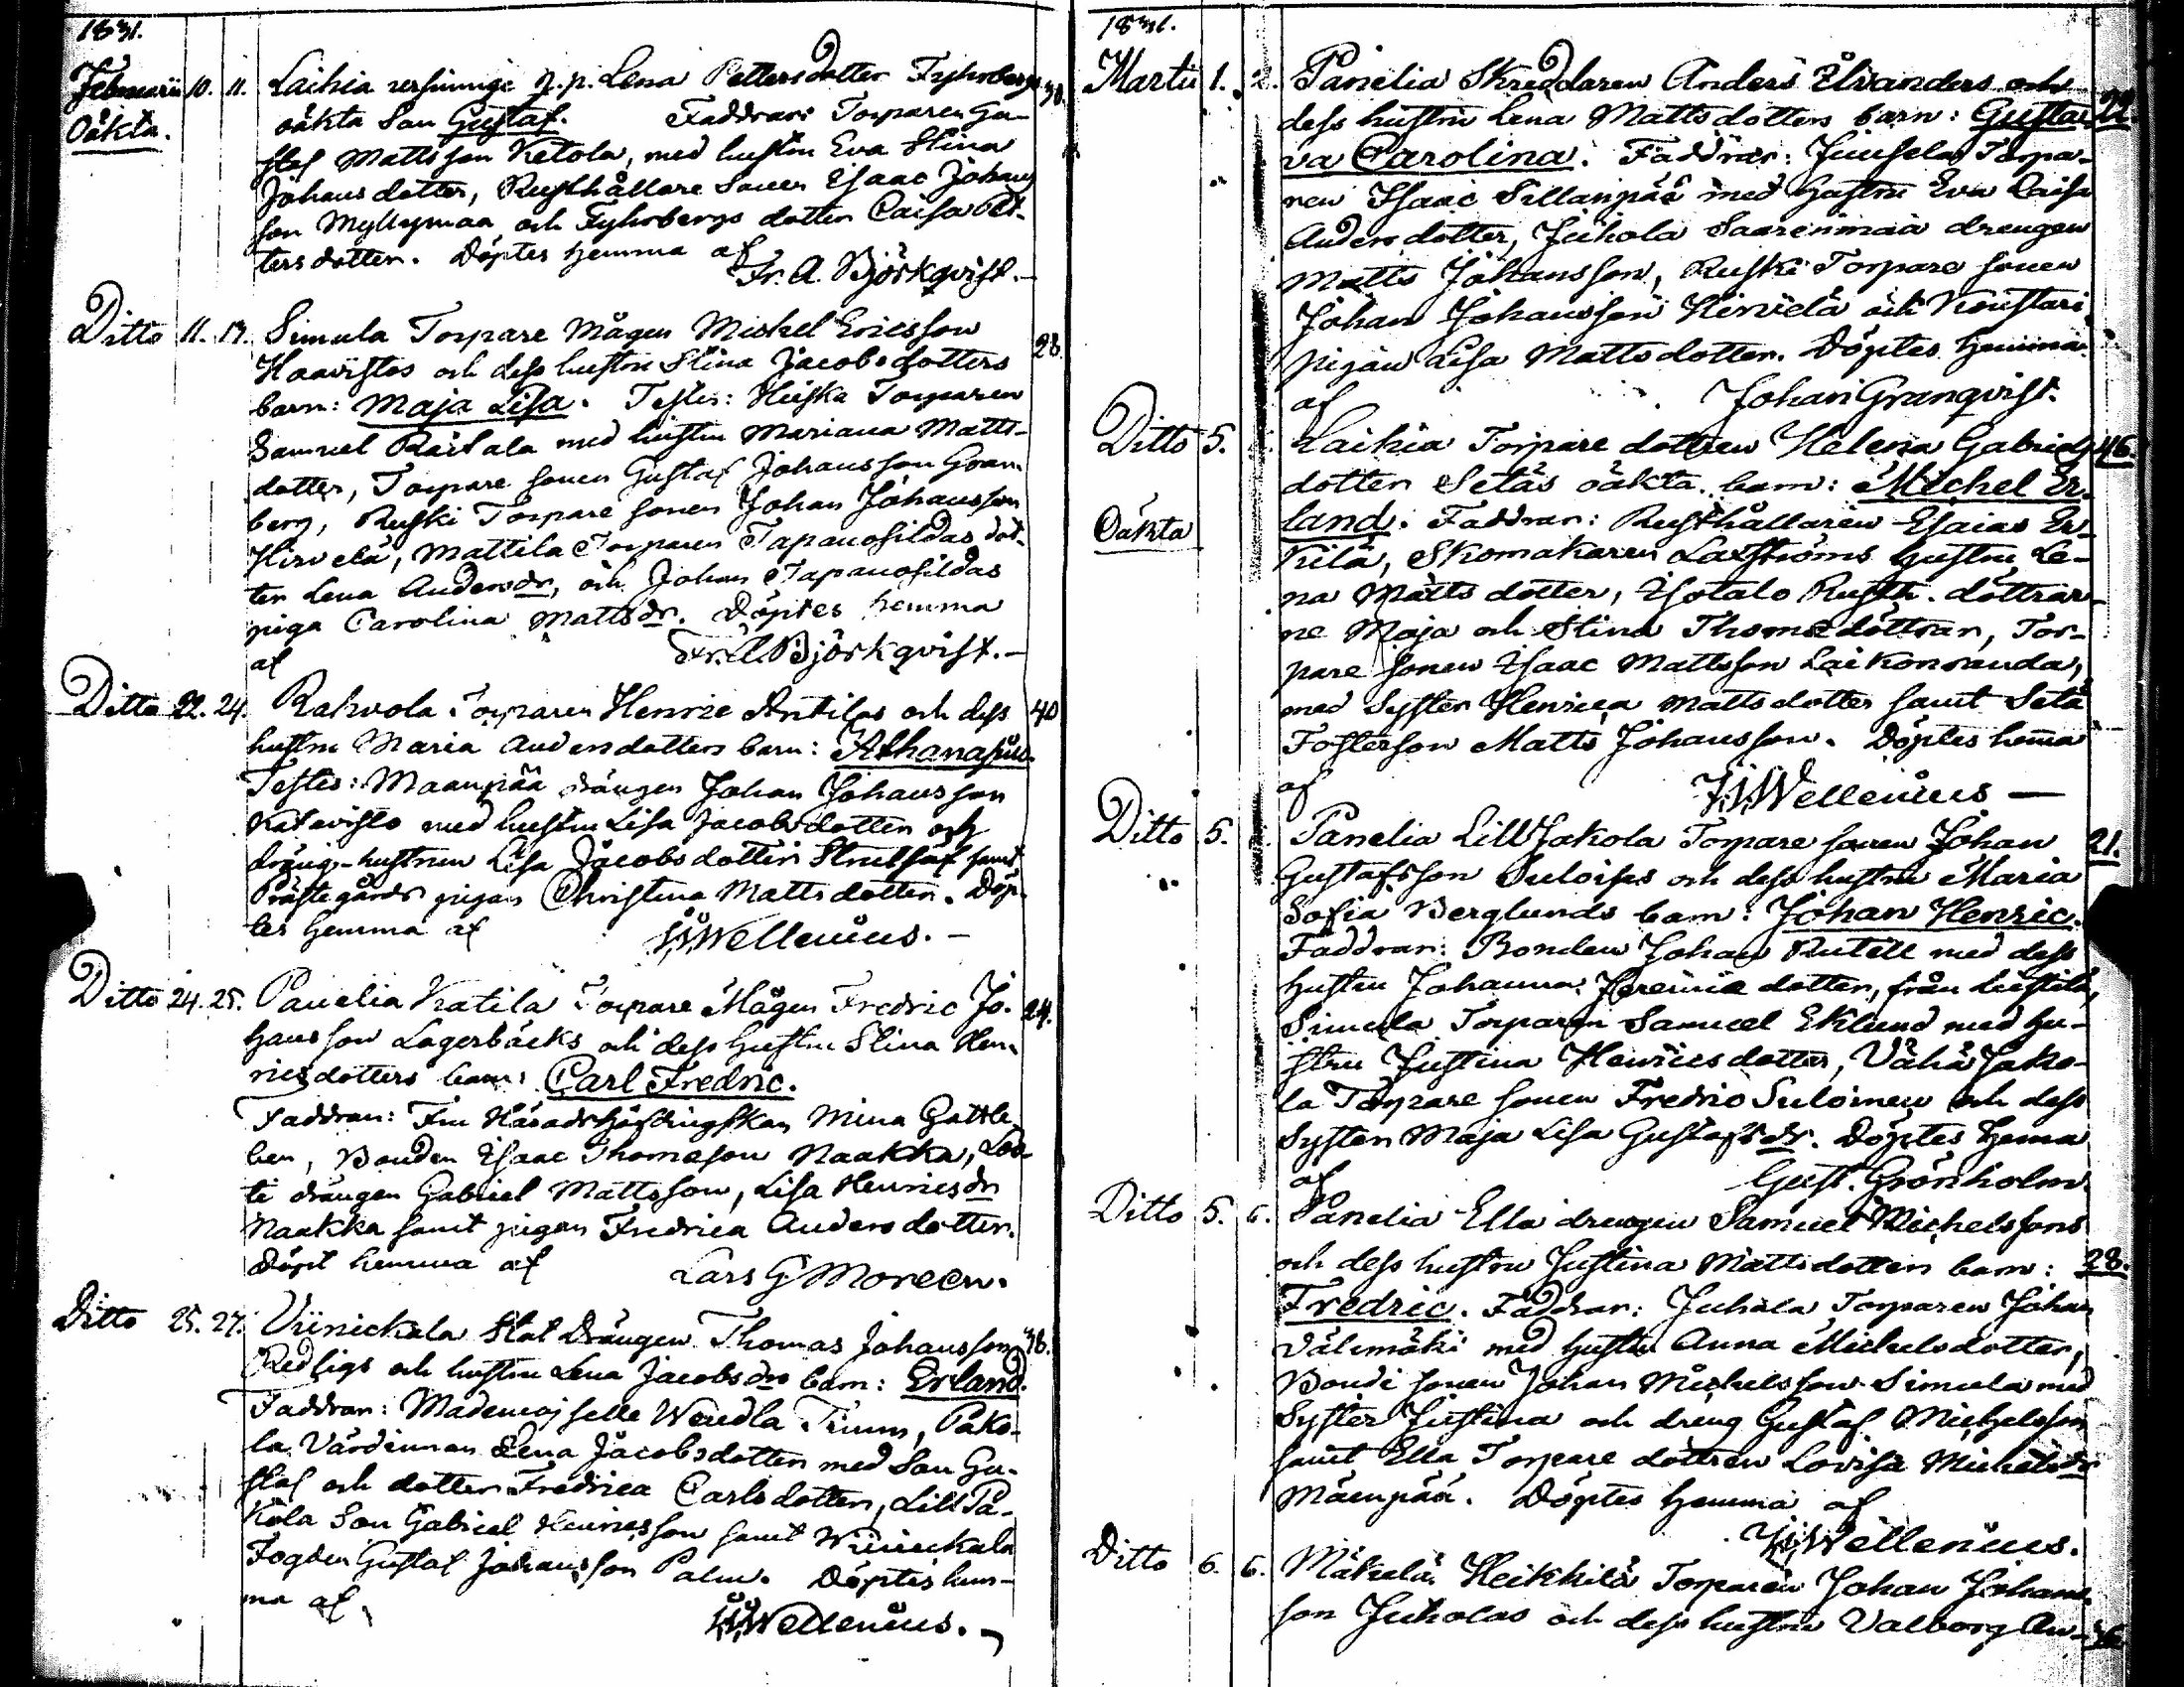 1831.
Februarii 10. 11. Laihia versinnige p. p. Lena Pettersdotter Fyhrbergs 30.
Oäkta. oäkta Son Gustaf. Faddrar: Torparen Gu-
staf Mattsson Ketola, med hustru Eva Stina
Johansdotter, Rusthållare Sonen Esaac Johans
son Myllymaa och Fyhrbergs dotter Caisa Pet-
tersdotter. Döptes hemma af
Fr. A. Björkqvist.
Ditto 11. 17. Simula Torpare Mågen Mickel Ericsson 28.
Haavistos och dess hustru Stina Jacobsdotters
barn: Maja Lisa. Testes: Torparen
Samuel Raitala med hustru Mariana Matts-
dotter, Torpare sonen Gustaf Johansson Gran-
berg, Ruski Torpare sonen Johan Johansson
Hirvelä, Mattila Torparen Tapanosildas dot-
ter Lena Andersdr, och Johan Tapanosildas
piga Carolina Mattsdr. Döptes hemma
af Fr. A. Björkqvist.
Ditto 22. 24. Rahvola Torparen Henric Antilas och dess 40
hustru Maria Andersdotters barn: Athanasius.
Testes: Maanpää drängen Johan Johansson
Katavisto med hustru Lisa Jacobsdotter och
dräng-hustrun Lisa Jacobsdotter samt
Prästegårds pigan Christina Mattsdotter. Döp-
tes hemma af Wellenius.
Ditto 24. 25. Panelia Katila Torpare Mågen Fredric Jo- 24.
hansson Lagerbäcks och dess hustru Stina Hen-
ricsdotters barn: Carl Fredric.
Faddrar: Fru Häradshöfdingskan Mina Gottle-
ben, Bonden Esaac Thomasson Naakka,
ti drängen Gabriel Mattsson, Lisa Henricsdr
Naakka samt pigan Fredrica Andersdotter.
Döpt hemma af Lars G Moreen.
Ditto 25. 27. Viinickala Stat Drängen Thomas Johansson 38.
Redligs och hustru Lena Jacobsdrs barn: Erland.
Faddrar: Mademoiselle Wendla, Pako-
la Värdinnan Lena Jacobsdotter med Son Gu-
staf och dotter Fredrica Carlsdotter, Lill Pa-
kola Son Gabriel Henricsson samt Wiinickala
Fogden Gustaf Johansson Palm. Döptes hem-
ma af Wellenius.
1831.
Martii 1. 2. Panelia Skreddaren Anders Elvanders och
dess hustru Lena Mattsdotters barn: Gusta-
va Carolina. Faddrar: Torpa-
ren Isaac Sillanpää med hustru Eva Caisa
Andersdotter, Juhola Saarenmaa drengen
Matts Johansson, Ruski Torpare sonen
Johan Johansson Hirvelä och Koustari
pigan Lisa Mattsdotter. Döptes hemma
af Johan Granqvist.
Ditto 5. Laihia Torpare dottren Helena Gabriels 46.
dotter Setäs oäkta barn: Michel Er-
Oäkta land. Faddrar: Rusthållaren Esaias Er-
kilä, Skomakaren Laxströms hustru Le-
na Mattsdotter, Isotalo Rusth. döttrar-
ne Maja och Stina Thomædöttrar, Tor-
pare sonen Isaac Mattsson Laikonranda,
med Syster Henrica Mattsdotter samt Setä
Fosterson Matts Johansson. Döptes hema
af Wellenius
Ditto 5. Panelia Lill Jakola Torpare sonen Johan 21.
Gustafsson Suloises och dess hustru Maria
Sofia Berglunds barn: Johan Henric.
Faddrar: Bonden Johan Rutell med dess
hustru Johanna dotter, från
Simula Torparen Samuel Eklund med hu-
stru Justina Henricsdotter, Vähä Jako-
la Torpare sonen Fredric Suloinen och dess
Syster Maja Lisa Gustafsdr. Döptes hema
af Gust. Grönholm.
Ditto 5. 6. Panelia Ella drengen Samuel Michelssons
och dess hustru Justina Mattsdotters barn: 28.
Fredric. Faddrar: Juhala Torparen Johan
Välimäki med hustru Anna Michelsdotter,
Bonde sonen Johan Michelsson Simula med
Syster Justina och dreng Gustaf Michelsson
samt Ella Torpare dottren Lovisa Michelsdr
Mäenpää. Döptes hemma af
Wellenius.
Ditto 6. 6. Mäkelä Heikkilä Torparen Johan Johans-
son Juholas och dess hustru Valborg An-